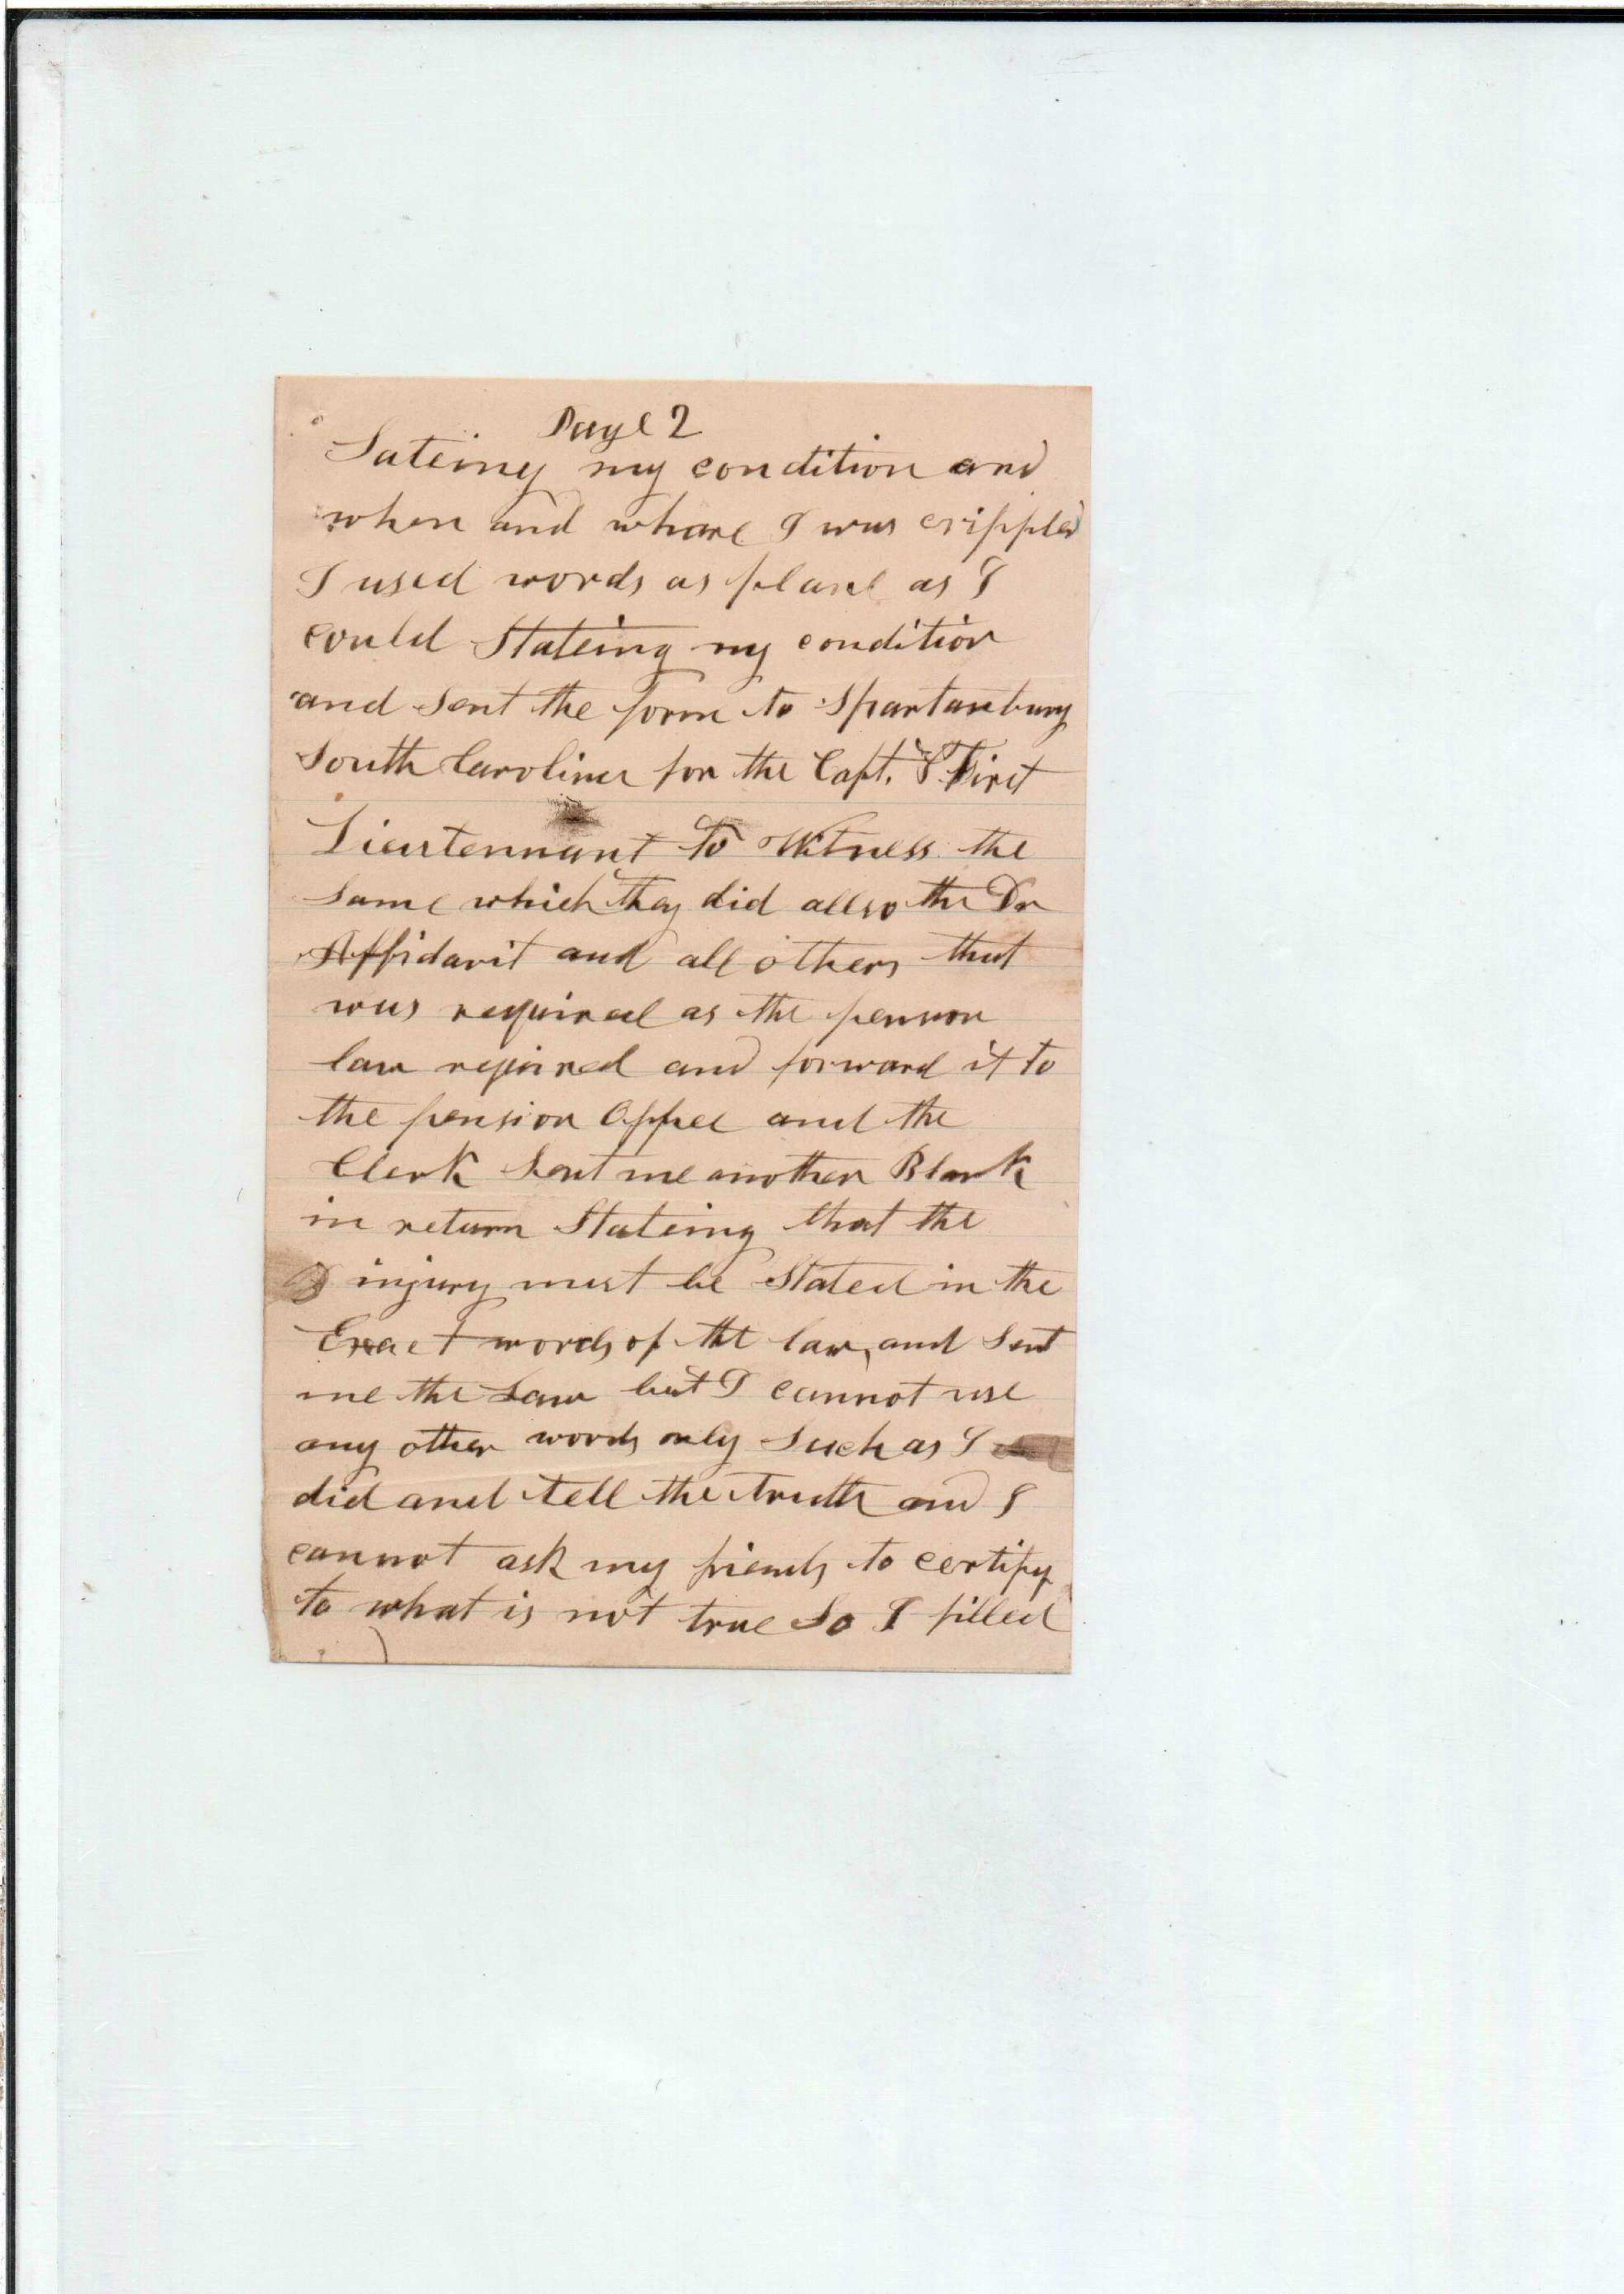 Page 2
Sateing my condition and
when and whare I was crippled
I used words as plane as I
could Stateing my condition
and sent the form to Spartanburg
South Carolina for the Capt. & First
Lieutennant to Witness the
same which they did allso the Dr
Affidavit and all others that
was required as the pension
law reqired and forward it to
the pension Offee and the
Clerk sent me another Blank
in return Stateing that the
injury must be Stated in the
Exact words of the law, and sent
me the Law but I cannot use
any other words only such as I
did and tell the truth and I
cannot ask my friends to certify
to what is not true So I filled